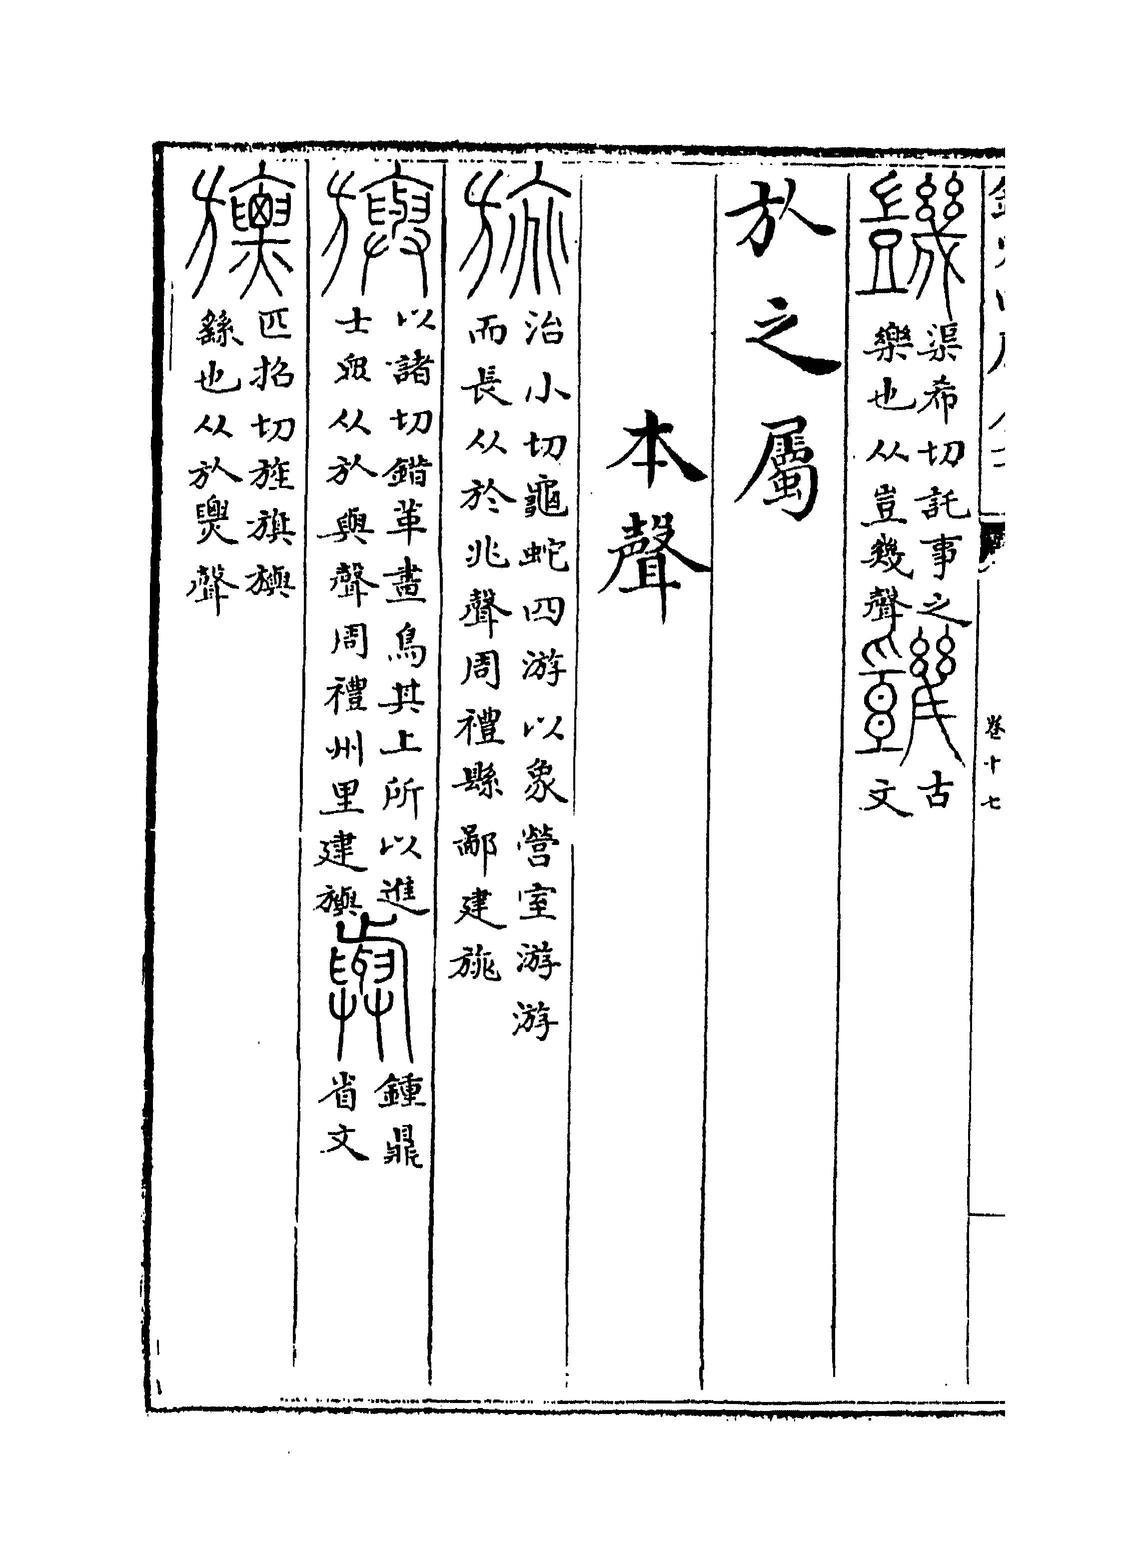 卷十七
渠希切訖事之
樂也从豈幾聲
古
文
㫃之屬
本聲
旐
治小切龜蛇四游以象營室游游
而長从於兆聲周禮縣鄙建旐
旟
以諸切錯革畫鳥其上所以進
士眾从㫃與聲周禮州里建旟
鍾鼎
省文
旚
匹招切旌旗旟
繇也从㫃㷼聲